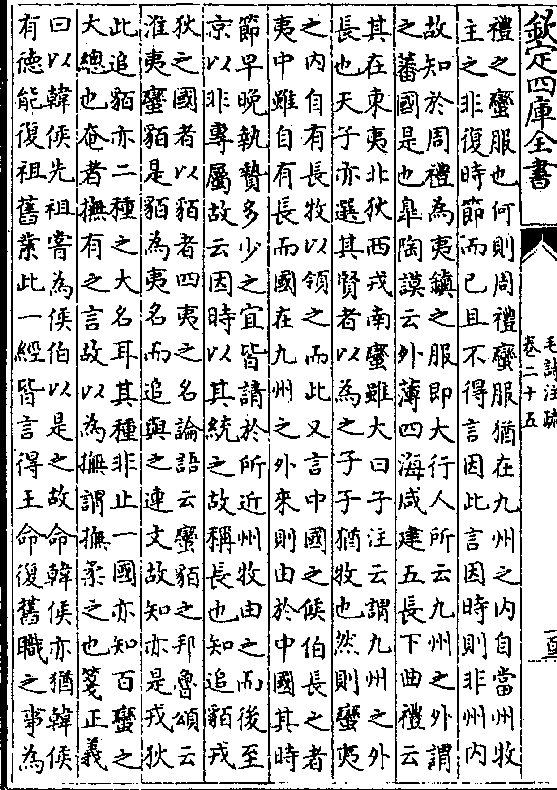 欽定四庫全書
毛詩注疏
卷二十五
禮之蠻服也何則周禮蠻服猶在九州之內自當州牧
主之非復時節而已且不得言因此言因時則非州內
故知於周禮為夷鎮之服即大行人所云九州之外謂
之蕃國是也臯陶謨云外薄四海咸建五長下曲禮云
其在東夷北狄西戎南蠻雖大曰子注云謂九州之外
長也天子亦選其賢者以為之子子猶牧也然則蠻夷
之內自有長牧以領之而此又言中國之侯伯長之者
夷中雖自有長而國在九州之外來則由於中國其時
節早晚執贄多少之宜皆請於所近州牧由之而後至
京以非專屬故云因時以其統之故稱長也知追貊戎
狄之國者以貊者四夷之名論語云蠻貊之邦魯頌云
淮夷蠻貊是貊為夷名而追與之連文故知亦是戎狄
此追貊亦二種之大名耳其種非止一國亦知百蠻之
大總也奄者撫有之言故以為撫謂撫柔之也箋正義
曰以韓侯先祖嘗為侯伯以是之故命韓侯亦猶韓侯
有德能復祖舊業此一經皆言得王命復舊職之事為